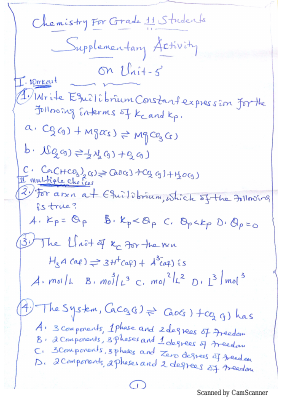 Chemistry For Grade 11 Students
Supplementary Activity
on Unit-5
I. Workout
1. Write Equilibrium Constant expression for the
following interms of Kc and Kp.
a. CO2(g) + MgO(s) ⇌ MgCO3(s)
b. NO2(g) ⇌ ½N2(g) + O2(g)
c. Ca(HCO3)2(s) ⇌ CaO(s) + CO2(g) + H2O(g)
II multiple choices
2. For a rxn at Equilibrium, which of the following
is true?
A. Kp = Qp B. Kp < Qp C. Qp < Kp D. Qp = 0
3. The Unit of Kc for the rxn
H3A(aq) ⇌ 3H⁺(aq) + A³⁻(aq) is
A. mol/L B. mol³/L³ C. mol²/L² D. L³/mol³
4. The System, CaCO3(s) ⇌ CaO(s) + CO2(g) has
A. 3 Components, 1 phase and 2 degrees of freedom
B. 2 Components, 3 phases and 1 degrees of freedom
C. 3 Components, 3 phases and Zero degrees of freedom
D. 2 Components, 2 phases and 2 degrees of freedom
1
Scanned by CamScanner